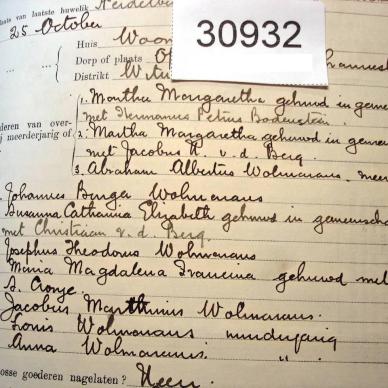 laats van laatste huwelik Heidelberg
25 October
30932
Huis Woon
Dorp of plaats
Distrikt Witw
1. Martha Margaretha gehuwd in gemeen
met Hermanus Petrus Bodenstein.
deren van over-
ij meerderjarig of
2. Martha Margaretha gehuwd in gemeen
met Jacobus H. v. d. Berg.
3. Abraham Albertus Wolmarans. meer
Johannes Burger Wolmarans
Susanna Catharina Elizabeth gehuwd in gemeenscha
met Christiaan v. d. Berg.
Josephus Theodorus Wolmarans
Maria Magdalena Francina gehuwd met
S. Cronje.
Jacobus Marthinus Wolmarans.
Louis Wolmarans minderjarig
Anna Wolmarans. "
osse goederen nagelaten? Neen.